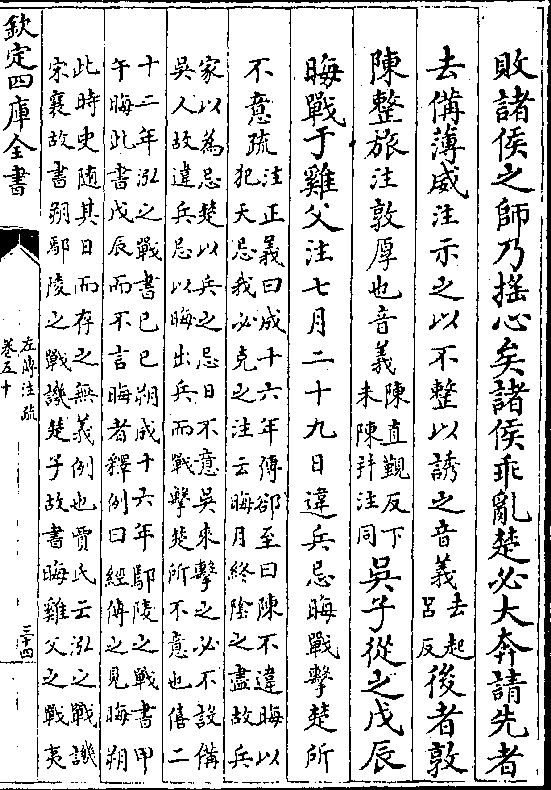 敗諸侯之師乃揺心矣諸侯乖亂楚必大奔請先者
去備薄威注示之以不整以誘之音義去起呂反後者敦
陳整旅注敦厚也音義陳直覲反下未陳并注同吳子從之戊辰
晦戰于雞父注七月二十九日違兵忌晦戰擊楚所
不意疏注正義曰成十六年傳郤至曰陳不違晦以
犯天忌我必克之注云晦月終隂之盡故兵
家以為忌楚以兵之忌日不意吳來擊之必不設備
吳人故違兵忌以晦出兵而戰擊楚所不意也僖二
十二年泓之戰書己巳朔成十六年鄢陵之戰書甲
午晦此書戊辰而不言晦者釋例曰經傳之見晦朔
此時史随其日而存之無義例也賈氏云泓之戰譏
宋襄故書朔鄢陵之戰譏楚子故書晦雞父之戰夷
欽定四庫全書
左傳注疏
卷五十
三十四